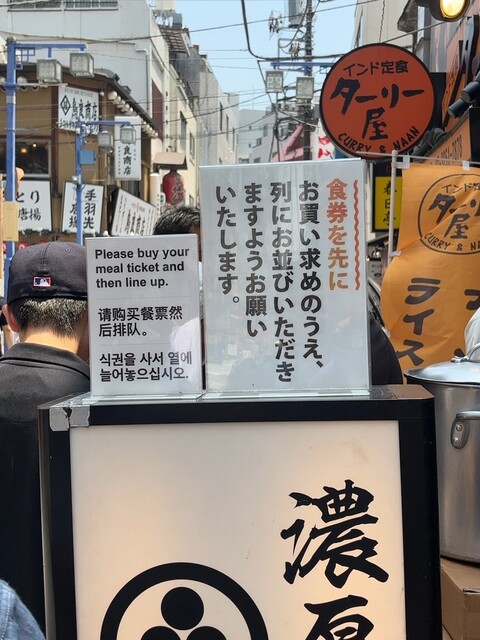 食券を先に
お買い求めのうえ、
列にお並びいただき
ますようお願い
いたします。
Please buy your
meal ticket and
then line up.
请购买餐票然
后排队。
식권을 사서 열에
늘어놓으십시오.
インド定食
ターリー
屋
CURRY & NAAN
インド
ターリ
屋
CURRY & N
ライス
濃厚
良商店
手羽先
唐揚